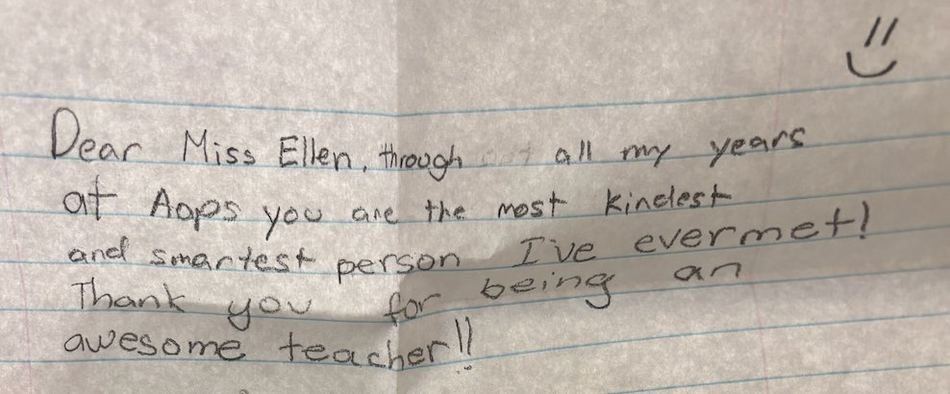 Dear Miss Ellen, through all my years
at Aaps you are the most kindest
and smartest person I've ever met!
Thank you for being an
awesome teacher!!